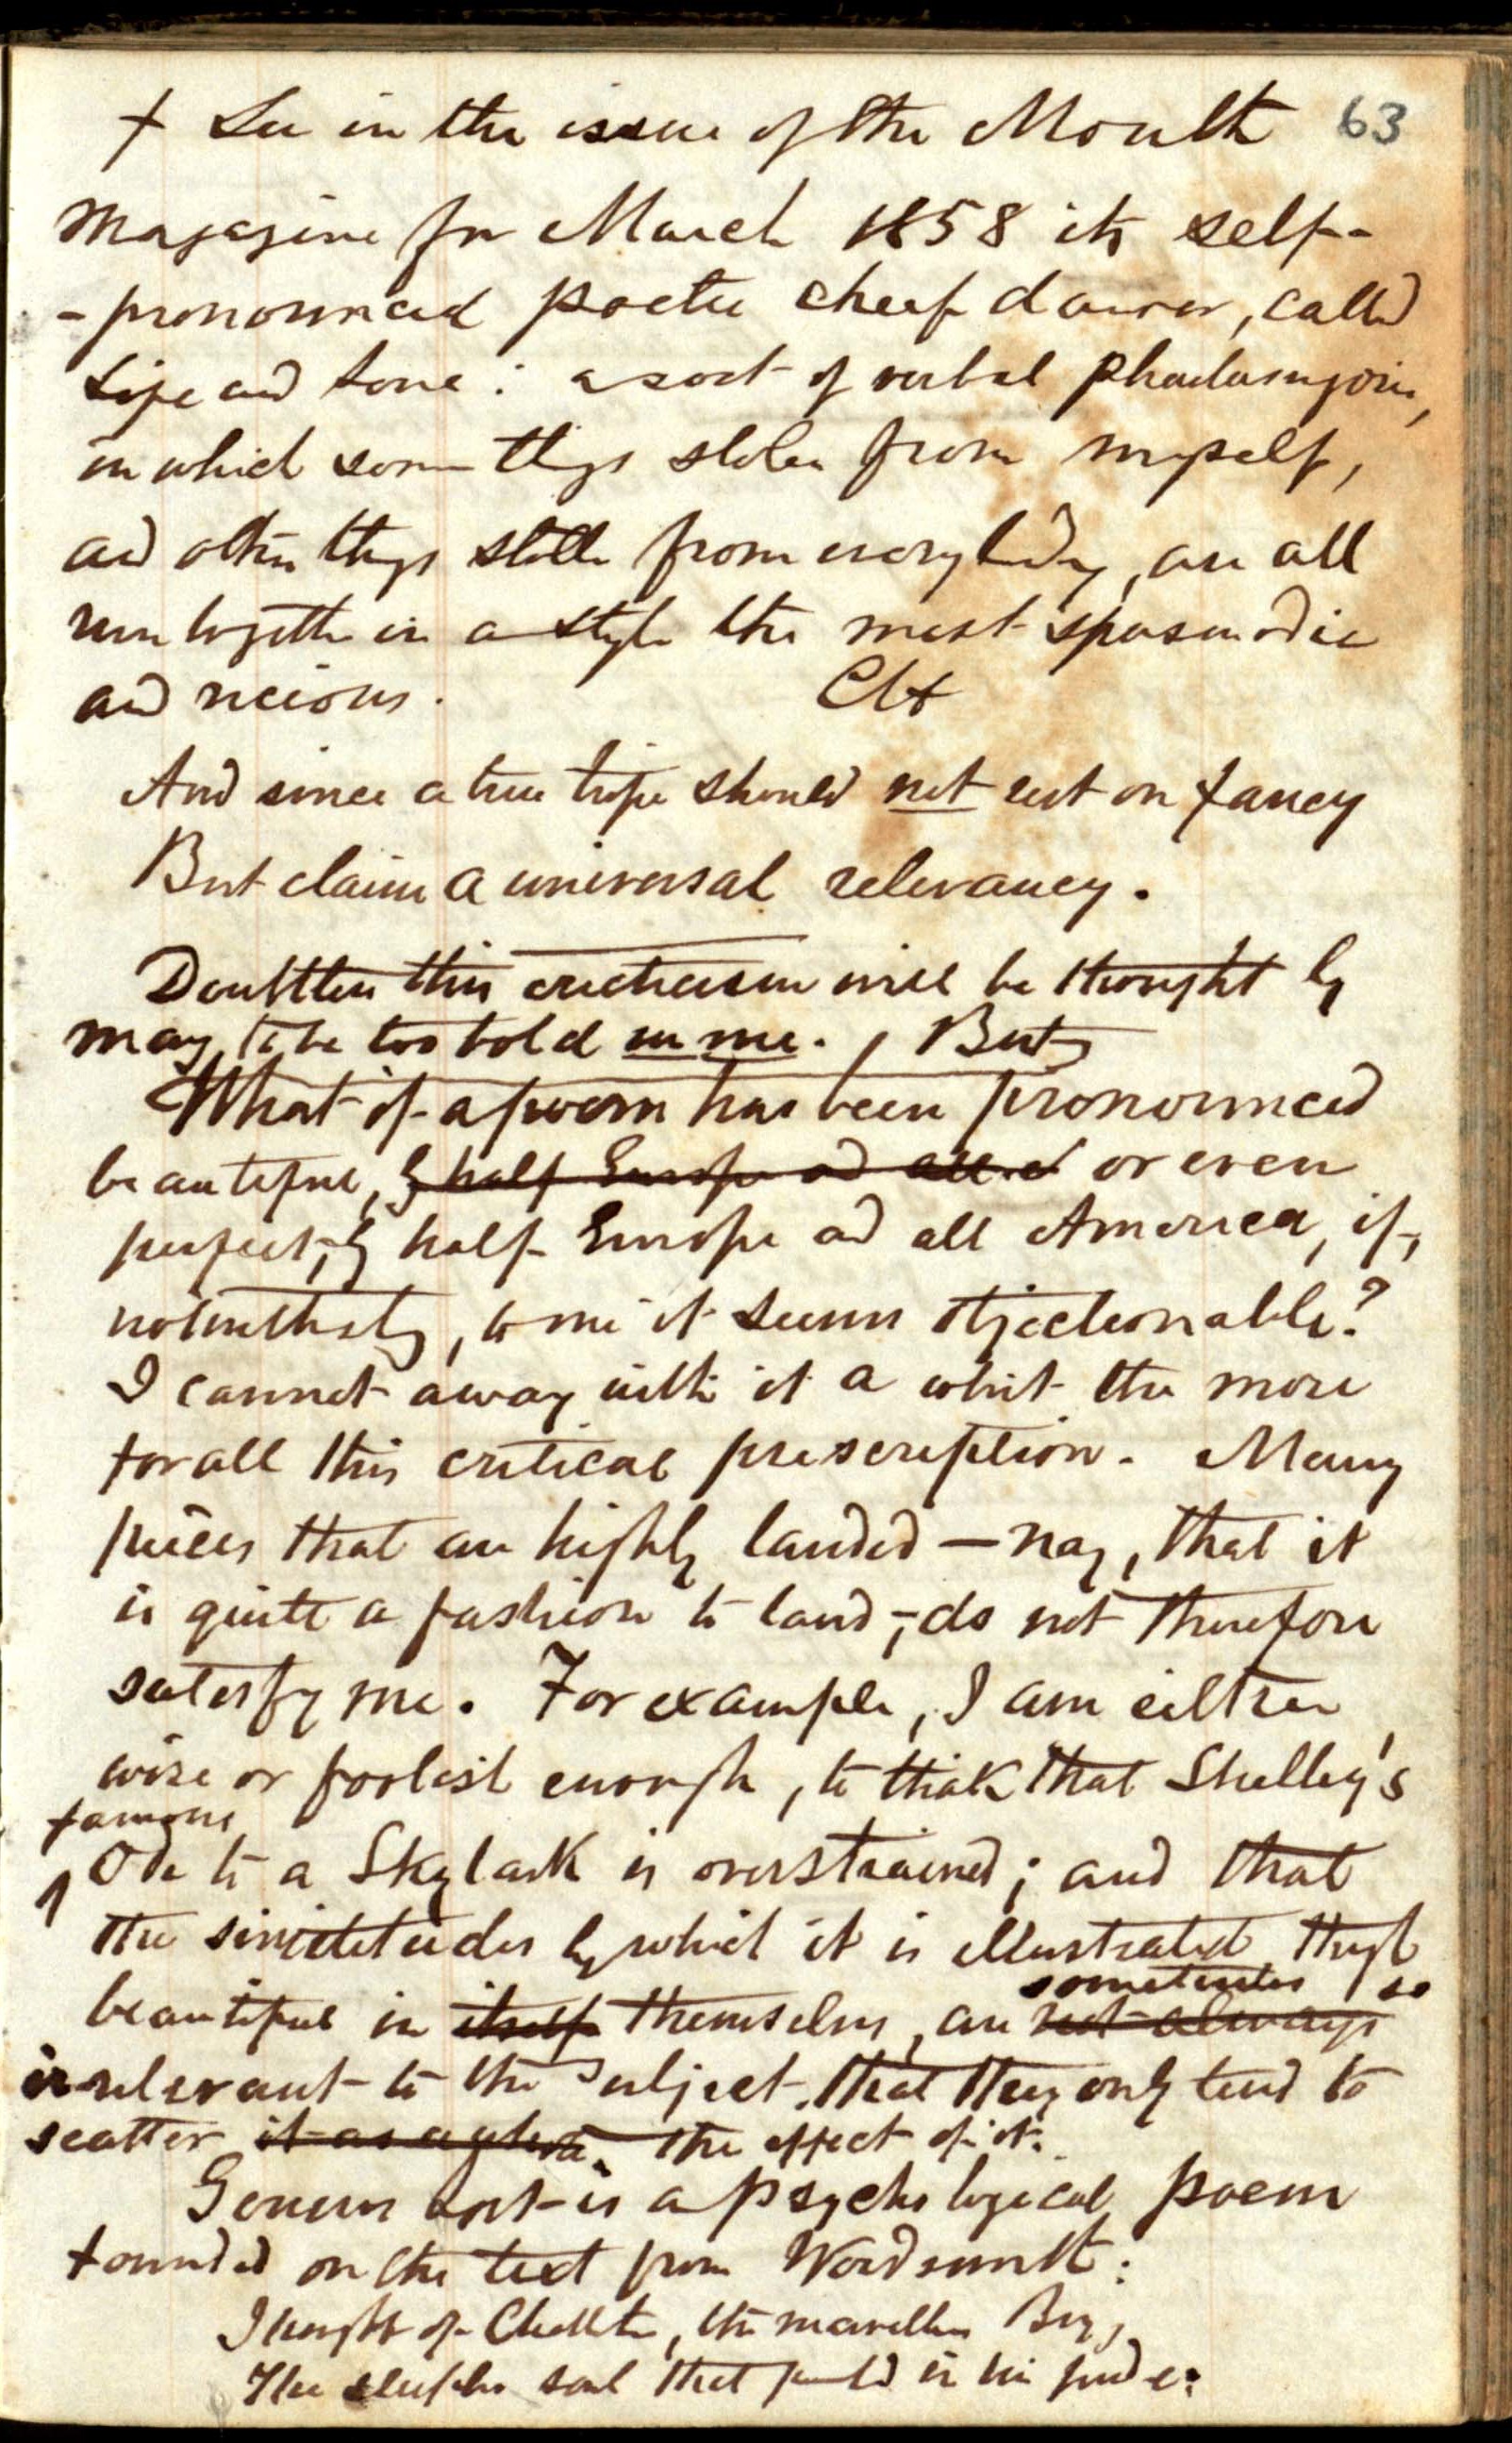 † See in the issue of the Month 63
Magazine for March 1858 its self-
-pronounced poetic cheef d'auver, called
Life and Love: a sort of verbal phadasmgoria,
in which some thigs stolen from myself,
and other thigs stolen from everybody, are all
run together in a style the most spasmodic
and vicious. CH
And since a true trope should not rest on fancy
But claim a universal relevancy.
Doubtless this criticism will be thought by
many to be too bold in me. But
What if a poem has been pronounced
beautiful, by half Europe and all of or even
perfect, by half Europe and all America, if,
notwithstg, to me it seems objectionable?
I cannot away with it a whit the more
for all this critical prescription. Many
pieces that are highly lauded — nay, that it
is quite a fashion to laud, — do not therefore
satisfy me. For example, I am either
wise or foolish enough, to thiak that Shelley's
famous
Ode to a Skylark is overstrained; and that
the similitudes by which it is illustrated thogh
sometimes so
beautiful in itself themselves, are not always
irrelevant to the subject, that they only tend to
scatter it as a whole the effect of it.
Genius Lost is a psychological poem
founded on the text from Wordsworth:
I thought of Chattn, the marvellous Boy,
The sleepless soul that perishd in his pride: